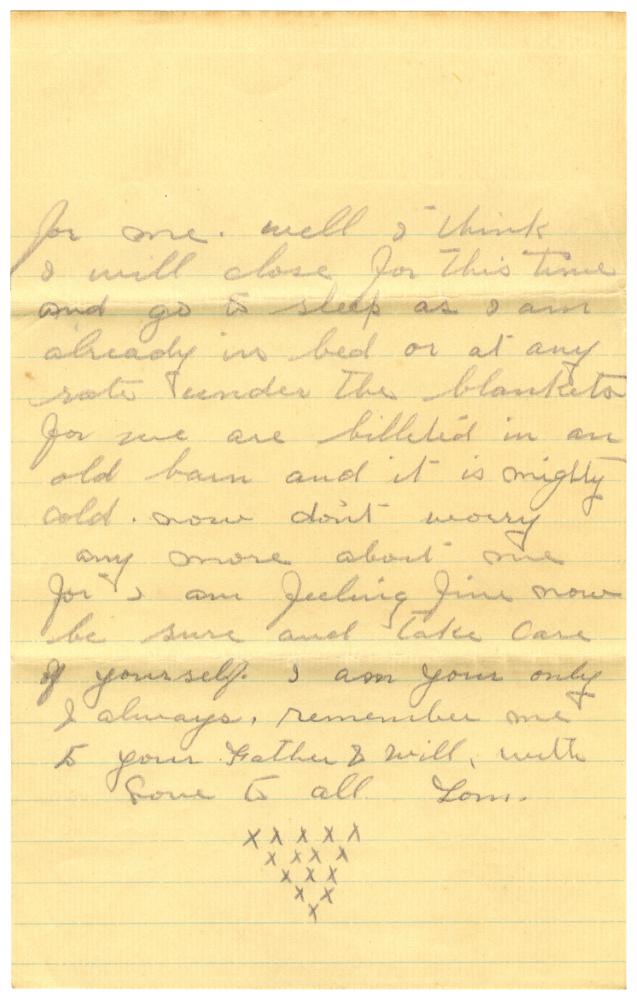 for me. well I think
I will close for this time
and go to sleep as I am
already in bed or at any
rate under the blankets
for we are billeted in an
old barn and it is mighty
cold. now don't worry
any more about me
for I am feeling fine now
be sure and take care
of yourself. I am your only
& always. remember me
to your Father & Will, with
Love to all Tom.
X X X X X
X X X X
X X X
X X
X